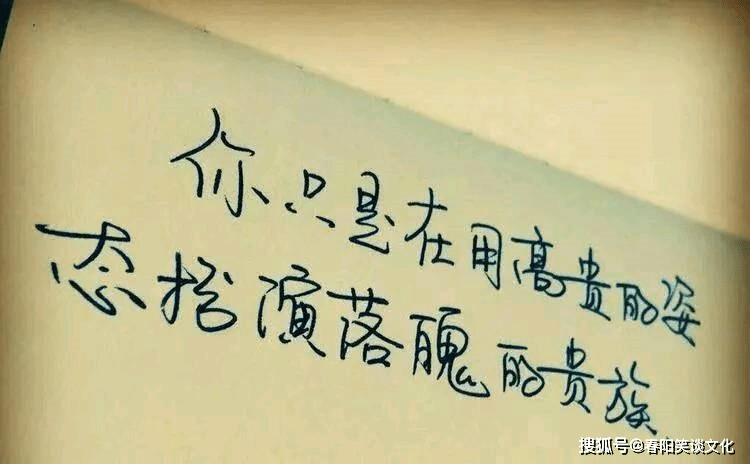 你只是在用高贵的姿
态扮演落魄的贵族
搜狐号@春阳笑谈文化